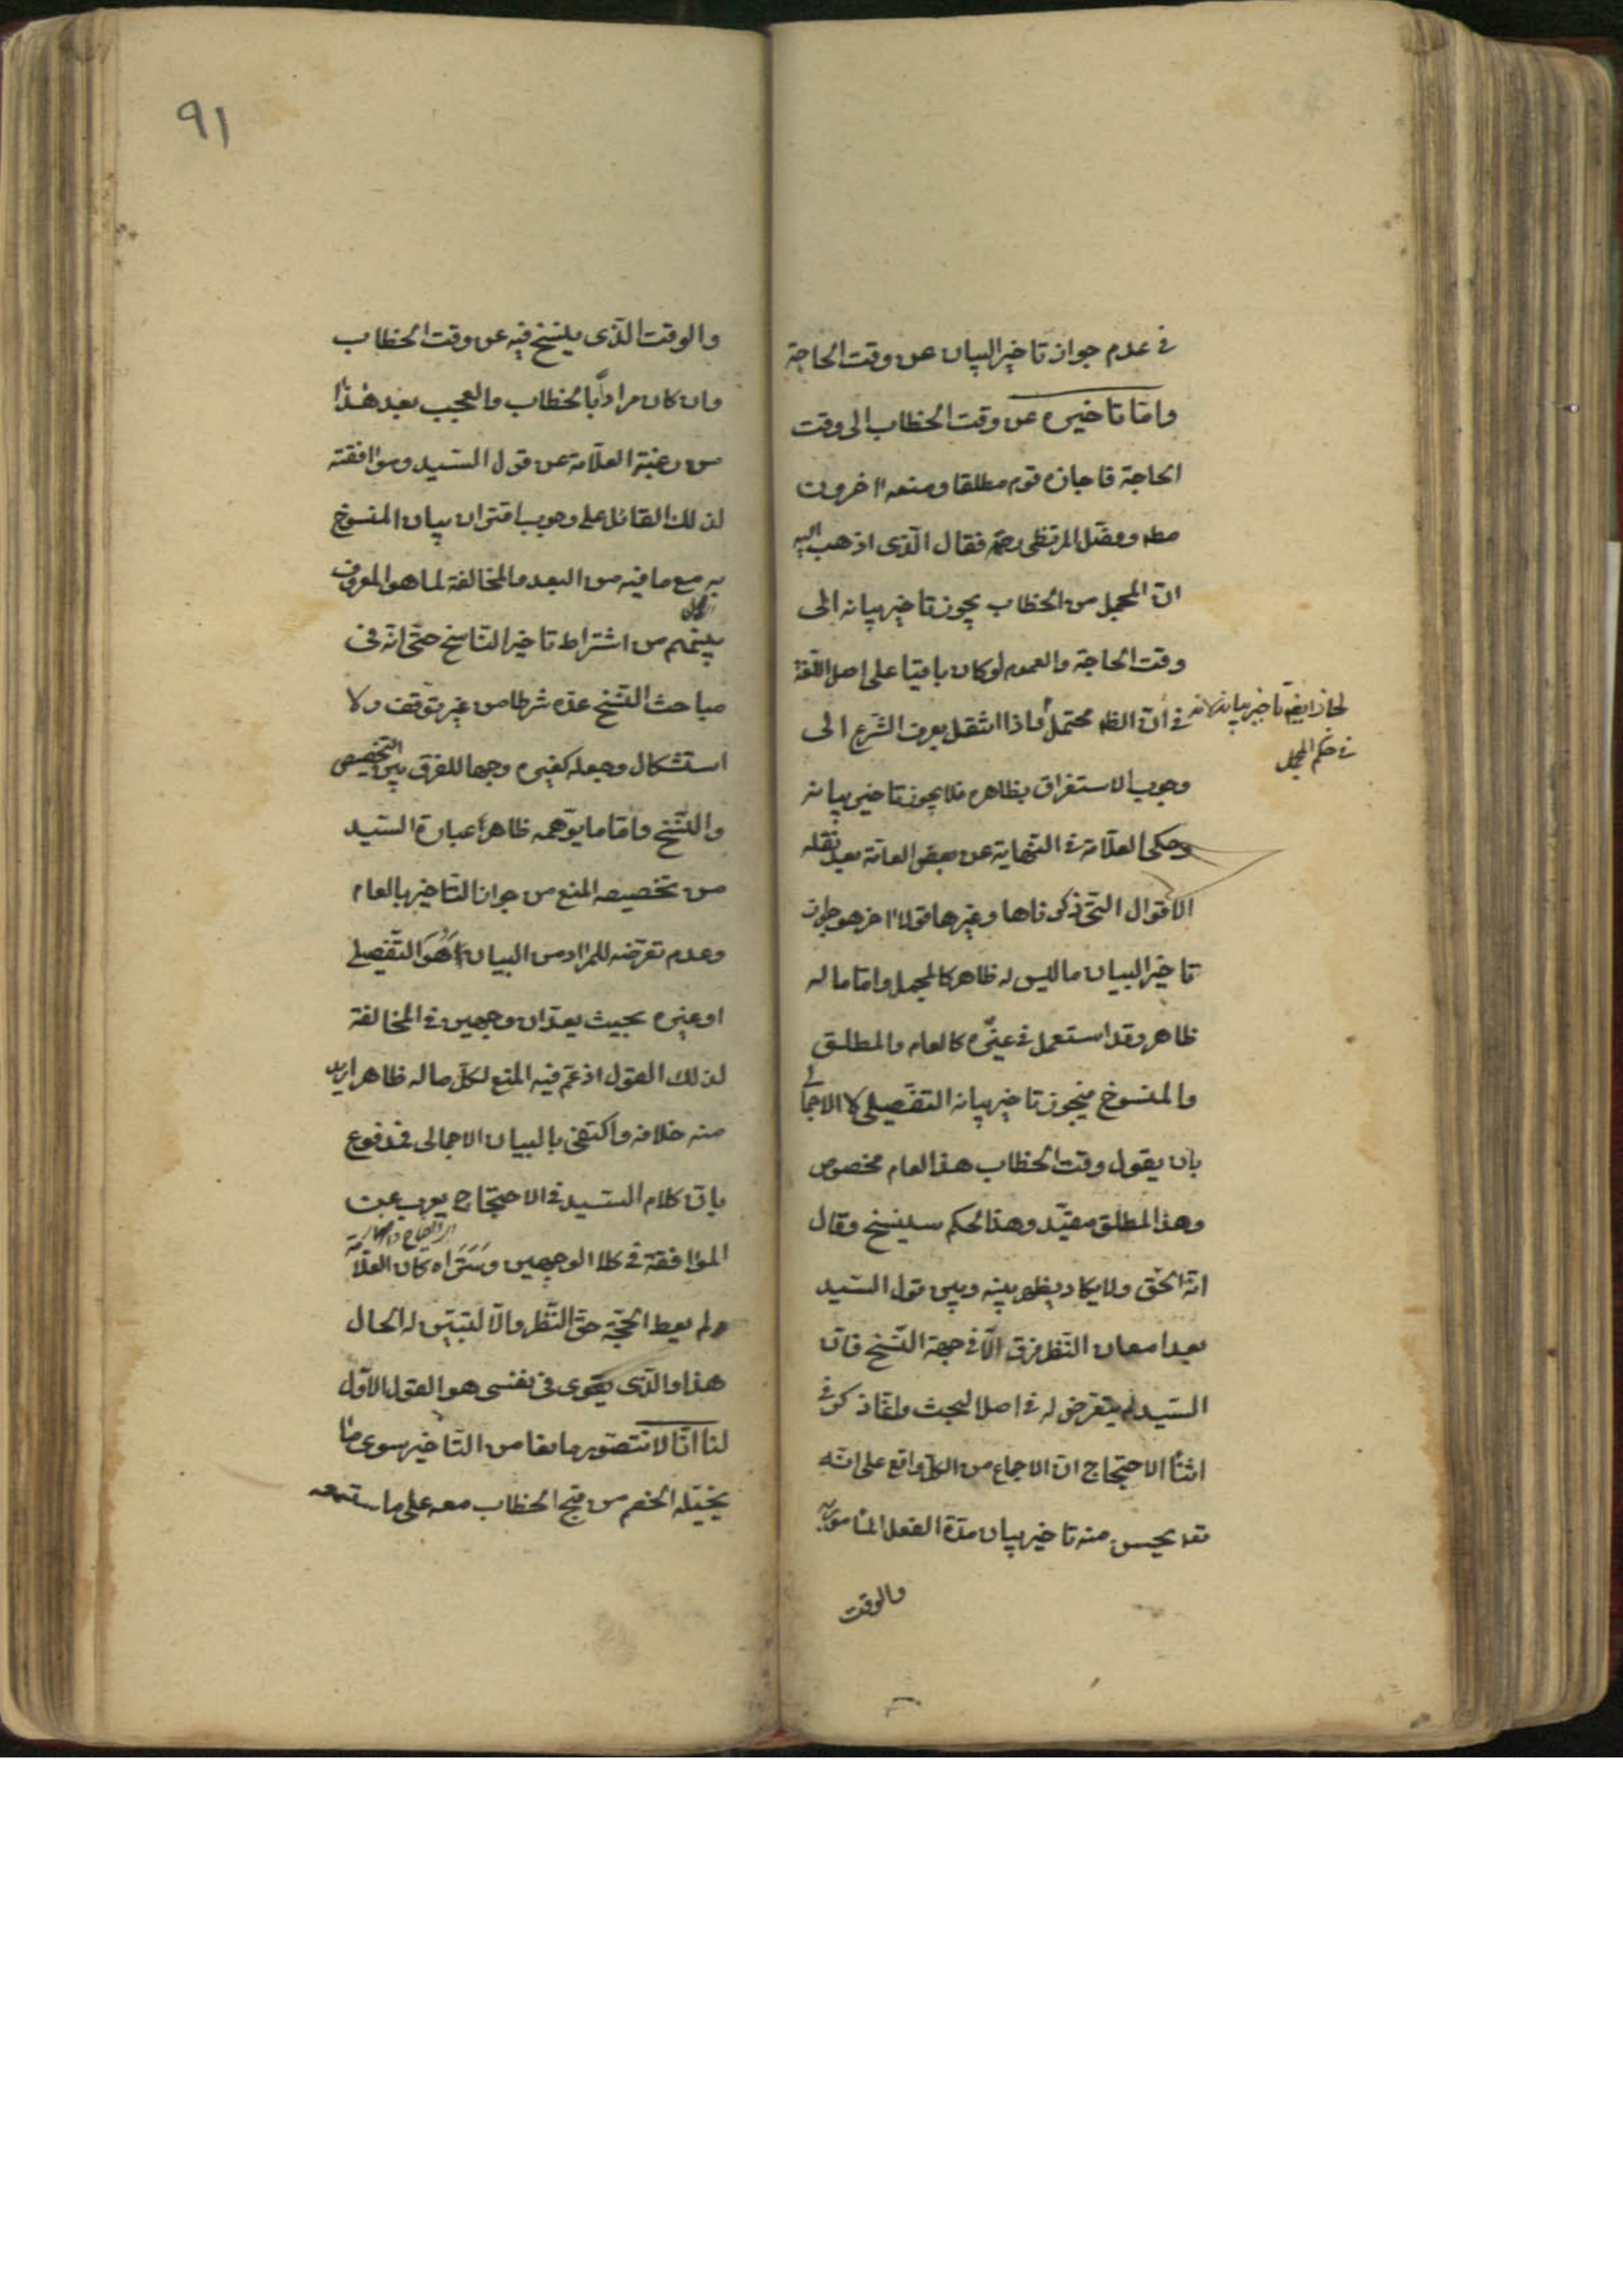 في عدم جواز تاخير البيان عن وقت الحاجة
وامّا تاخيره عن وقت الخطاب الى وقت
الحاجة فاجازه قوم مطلقا ومنعه اخرون
مطه وفصّل المرتضى رحمه فقال الّذى اذهب اليه
انّ المجمل من الخطاب يجوز تاخير بيانه الى
وقت الحاجة والعموم لو كان باقيا على اصل اللّغة
في انّ الظه محتمل فاذا انتقل بعرف الشّرع الى
لجاز ايضا تاخير بيانه لانه
في حكم المجمل
وجوب الاستغراق بظاهره فلا يجوز تاخير بيانه
وحكى العلّامة في النّهاية عن بعض العامّة بعد نقله
الاقوال التى ذكرناها وغيرها قولا اخر هو جواز
تاخير البيان ما ليس له ظاهر كالمجمل وامّا ما له
ظاهر وقد استعمل في غيره كالعام والمطلق
والمنسوخ فيجوز تاخير بيانه التفصيلى لا الاجمالي
بان يقول وقت الخطاب هذا العام مخصوص
وهذا المطلق مقيّد وهذا الحكم سينسخ وقال
انّه الحق ولا يكاد يظهر بينه وبين قول السّيد
بعد امعان النّظر فرق الّا في جهة النّسخ فانّ
السّيد لم يتعرض له في اصل البحث وانّما ذكر في
اثناء الاحتجاج انّ الاجماع من الكلّ واقع على انّه
تعه يحسن منه تاخير بيان مدّة الفعل المأمور به
والوقت
٩١
والوقت الّذى ينسخ فيه عن وقت الخطاب
وان كان مرادا بالخطاب والعجب بعد هذا
من رغبة العلّامة عن قول السّيد وموافقته
لذلك القائل على وجوب اقتران بيان المنسوخ
به مع ما فيه من البعد والمخالفة لما هو المعروف
بينهم من اشتراط تاخير النّاسخ حتّى انّه في
مباحث النّسخ عدّه شرطا من غير توقّف ولا
استشكال وجعله كغيره وجها للفرق بين التخصيص
والنّسخ وامّا ما يوّهمه ظاهر عبارة السّيد
من تخصيصه المنع من جواز التّاخير بالعام
وعدم تعرّضه للمراد من البيان اهو التّفصيلى
او غيره بحيث يعدّان وجهين في المخالفة
لذلك القول اذ عمّ فيه المنع لكلّ ما له ظاهر اريد
منه خلافه واكتفى بالبيان الاجمالى فمدفوع
بانّ كلام السّيد في الاحتجاج يعرب عن
الموافقة في كلا الوجهين وسَتَراه كان العلّامة
لم يعط الحجّة حقّ النّظر والّا لتبيّن له الحال
هذا والّذى يقوى في نفسى هو القول الاوّل
لنا انّا لا نتصّور مانعا من التّاخير سوى ما
يخيّله الخصم من قبح الخطاب معه على ما ستسمعه